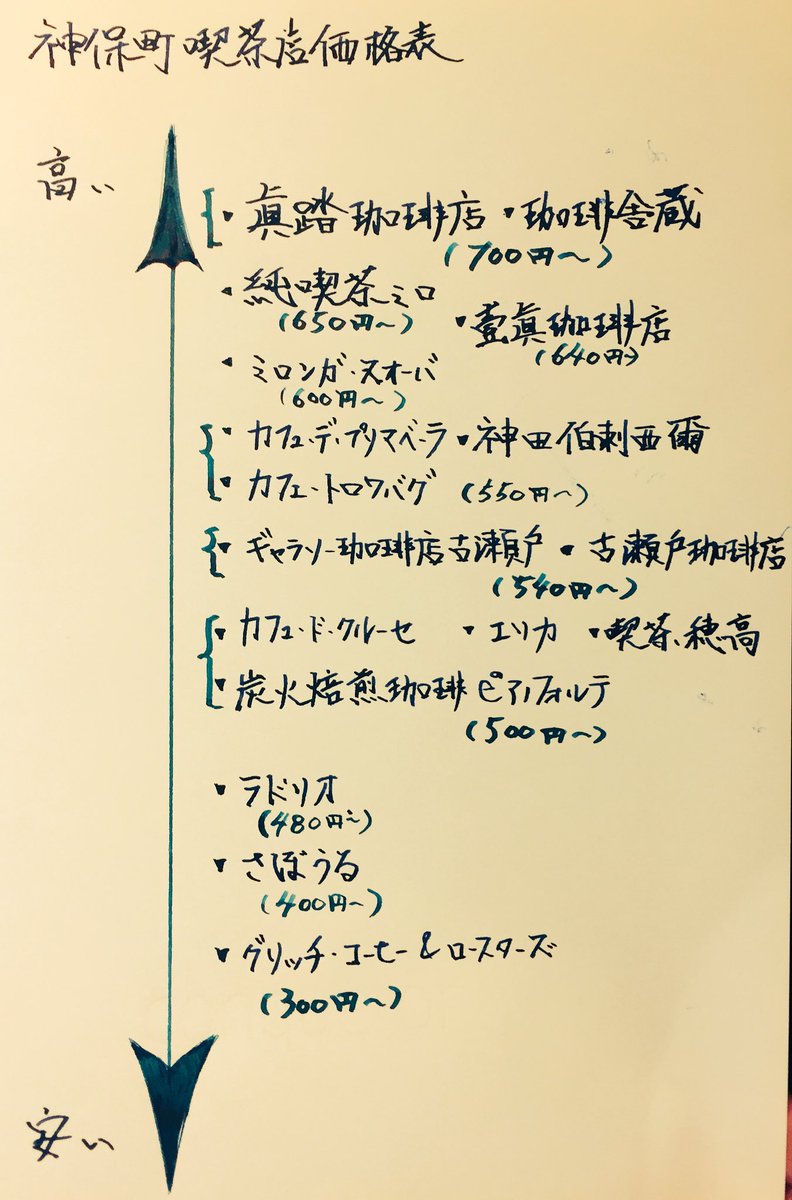 神保町喫茶店価格表
高い
・眞踏珈琲店 ・珈琲舎蔵
(700円〜)
・純喫茶ミロ
(650円〜)
・壹眞珈琲店
(640円〜)
・ミロンガ・ヌオーバ
(600円〜)
・カフェ・デ・プリマベーラ ・神田伯剌西爾
・カフェ・トロワバグ (550円〜)
・ギャラリー珈琲店古瀬戸 ・古瀬戸珈琲店
(540円〜)
・カフェ・ド・クルーセ ・エリカ ・喫茶、穂高
・炭火焙煎珈琲ピアノフォルテ
(500円〜)
・ラドリオ
(480円〜)
・さぼうる
(400円〜)
・グリッチ・コーヒー&ロースターズ
(300円〜)
安い